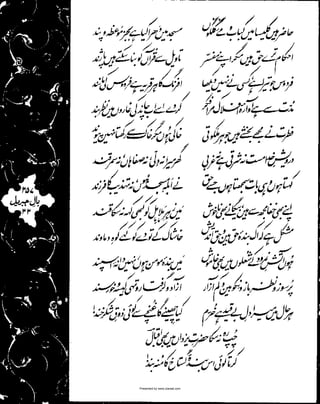 حاضر ہیں کلیسا میں کباب و مئے گلگوں
مسجد میں دھرا کیا ہے بجز موعظہ و پند
احکام ترے حق ہیں مگر اپنے مفسر
تاویل سے قرآں کو بنا سکتے ہیں پاژند
فردوس جو تیرا ہے، کسی نے نہیں دیکھا
افرنگ کا ہر قریہ ہے فردوس کی مانند
مدت سے ہے آوارۂ افلاک مرا فکر
کر دے اسے اب چاند کے غاروں میں نظر بند
فطرت نے مجھے بخشے ہیں جوہر ملکوتی
خاکی ہوں مگر خاک سے رکھتا نہیں پیوند
درویشِ خدا مست نہ شرقی ہے نہ غربی
گھر میرا نہ دلی، نہ صفاہاں، نہ سمرقند
کہتا ہوں وہی بات سمجھتا ہوں جسے حق
نے ابلۂ مسجد ہوں، نہ تہذیب کا فرزند
اپنے بھی خفا مجھ سے ہیں، بیگانے بھی ناخوش
میں زہرِ ہلاہل کو کبھی کہہ نہ سکا قند
مشکل ہے کہ اک بندۂ حق بین و حق اندیش
خاشاک کے تودے کو کہے کوہِ دماوند
ہوں آتشِ نمرود کے شعلوں میں بھی خاموش
میں بندۂ مومن ہوں، نہیں دانۂ اسپند
پرسوز و نظرباز و نکوبین و کم آزار
آزاد و گرفتار و تہی کیسہ و خورسند
ہر حال میں میرا دلِ بے قید ہے خرم
کیا چھینے گا غنچے سے کوئی ذوقِ شکر خند!
چپ رہ نہ سکا حضرتِ یزداں میں بھی اقبال
کرتا کوئی اس بندۂ گستاخ کا منہ بند!
۳۵۷
بالِ جبریل
۳۳